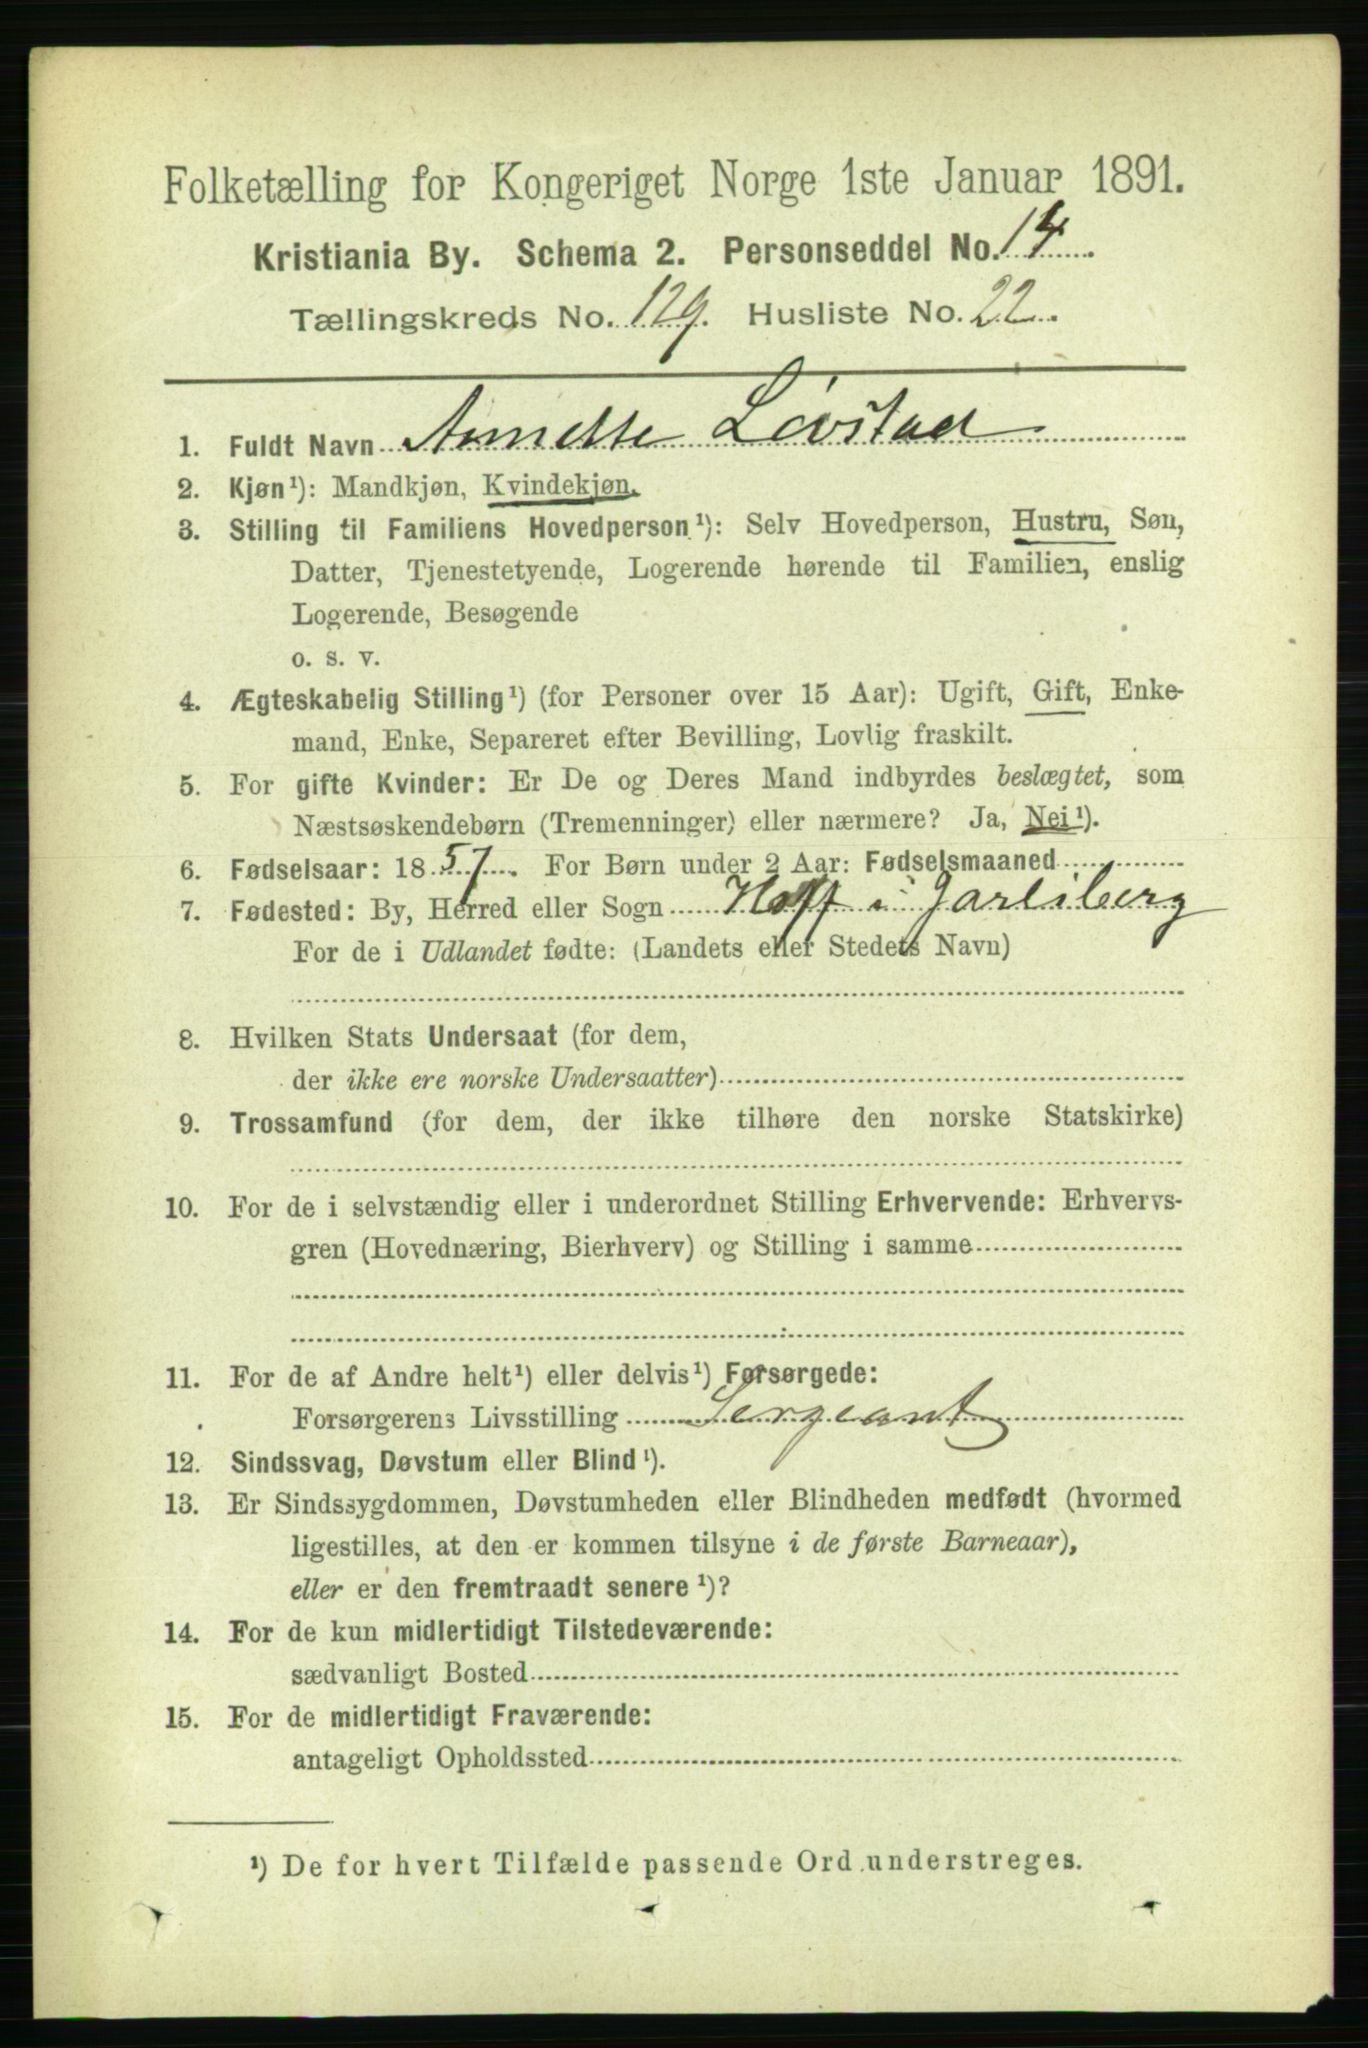 Folketælling for Kongeriget Norge 1ste Januar 1891.
Kristiania By. Schema 2. Personseddel No. 14.
Tællingskreds No. 129. Husliste No. 22.
1. Fuldt Navn Annette Lövstad
2. Kjøn¹): Mandkjøn, Kvindekjøn.
3. Stilling til Familiens Hovedperson¹): Selv Hovedperson, Hustru, Søn,
Datter, Tjenestetyende, Logerende hørende til Familien, enslig
Logerende, Besøgende
o. s. v.
4. Ægteskabelig Stilling¹) (for Personer over 15 Aar): Ugift, Gift, Enke-
mand, Enke, Separeret efter Bevilling, Lovlig fraskilt.
5. For gifte Kvinder: Er De og Deres Mand indbyrdes beslægtet, som
Næstsøskendebørn (Tremenninger) eller nærmere? Ja, Nei¹).
6. Fødselsaar: 1857. For Børn under 2 Aar: Fødselsmaaned
7. Fødested: By, Herred eller Sogn Hoff i Jarlsberg
For de i Udlandet fødte: (Landets eller Stedets Navn)
8. Hvilken Stats Undersaat (for dem,
der ikke ere norske Undersaatter)
9. Trossamfund (for dem, der ikke tilhøre den norske Statskirke)
10. For de i selvstændig eller i underordnet Stilling Erhvervende: Erhvervs-
gren (Hovednæring, Bierhverv) og Stilling i samme
11. For de af Andre helt¹) eller delvis¹) Forsørgede:
Forsørgerens Livsstilling Sergeant
12. Sindssvag, Døvstum eller Blind¹).
13. Er Sindssygdommen, Døvstumheden eller Blindheden medfødt (hvormed
ligestilles, at den er kommen tilsyne i de første Barneaar),
eller er den fremtraadt senere¹)?
14. For de kun midlertidigt Tilstedeværende:
sædvanligt Bosted
15. For de midlertidigt Fraværende:
antageligt Opholdssted
¹) De for hvert Tilfælde passende Ord understreges.